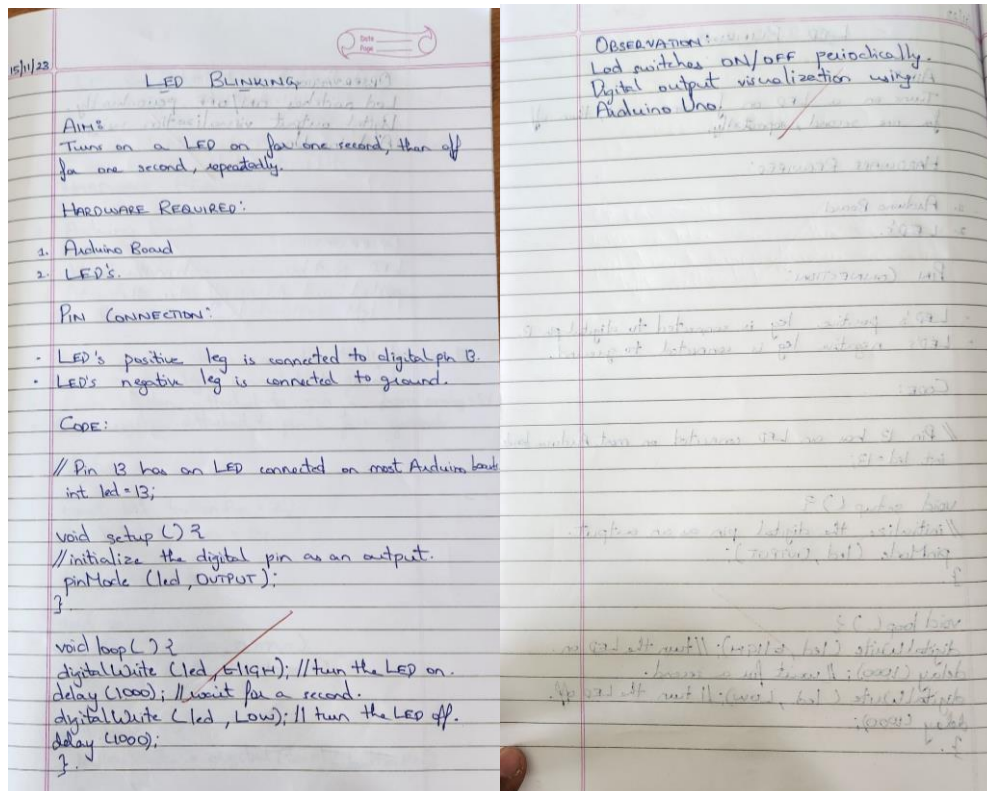 Date
Page
15/11/23
LED BLINKING
AIM:
Turns on a LED on for one second, than off
for one second, repeatedly.
HARDWARE REQUIRED:
1. Arduino Board
2. LED's.
PIN CONNECTION:
• LED's positive leg is connected to digital pin 13.
• LED's negative leg is connected to ground.
CODE:
// Pin 13 has an LED connected on most Arduino boards
int led = 13;
void setup () {
//initialize the digital pin as an output.
pinMode (led, OUTPUT);
}
void loop () {
digitalWrite (led, HIGH); //turn the LED on.
delay (1000); //wait for a second.
digitalWrite (led, LOW); // turn the LED off.
delay (1000);
}.
OBSERVATION:
Led switches ON/OFF periodically.
Digital output visualization using
Arduino Uno.